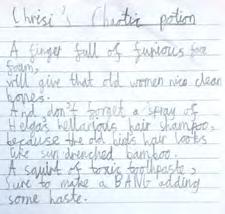 Chrisi's Chaotic potion
A finger full of furious fox
foam,
will give that old women nice clean
bones.
And don't forget a spray of
Helga's hellarious hair shampoo,
because the old bids hair loots
like sun drenched bamboo.
A squirt of toxic toothpaste,
Sure to make a BANG adding
some haste.